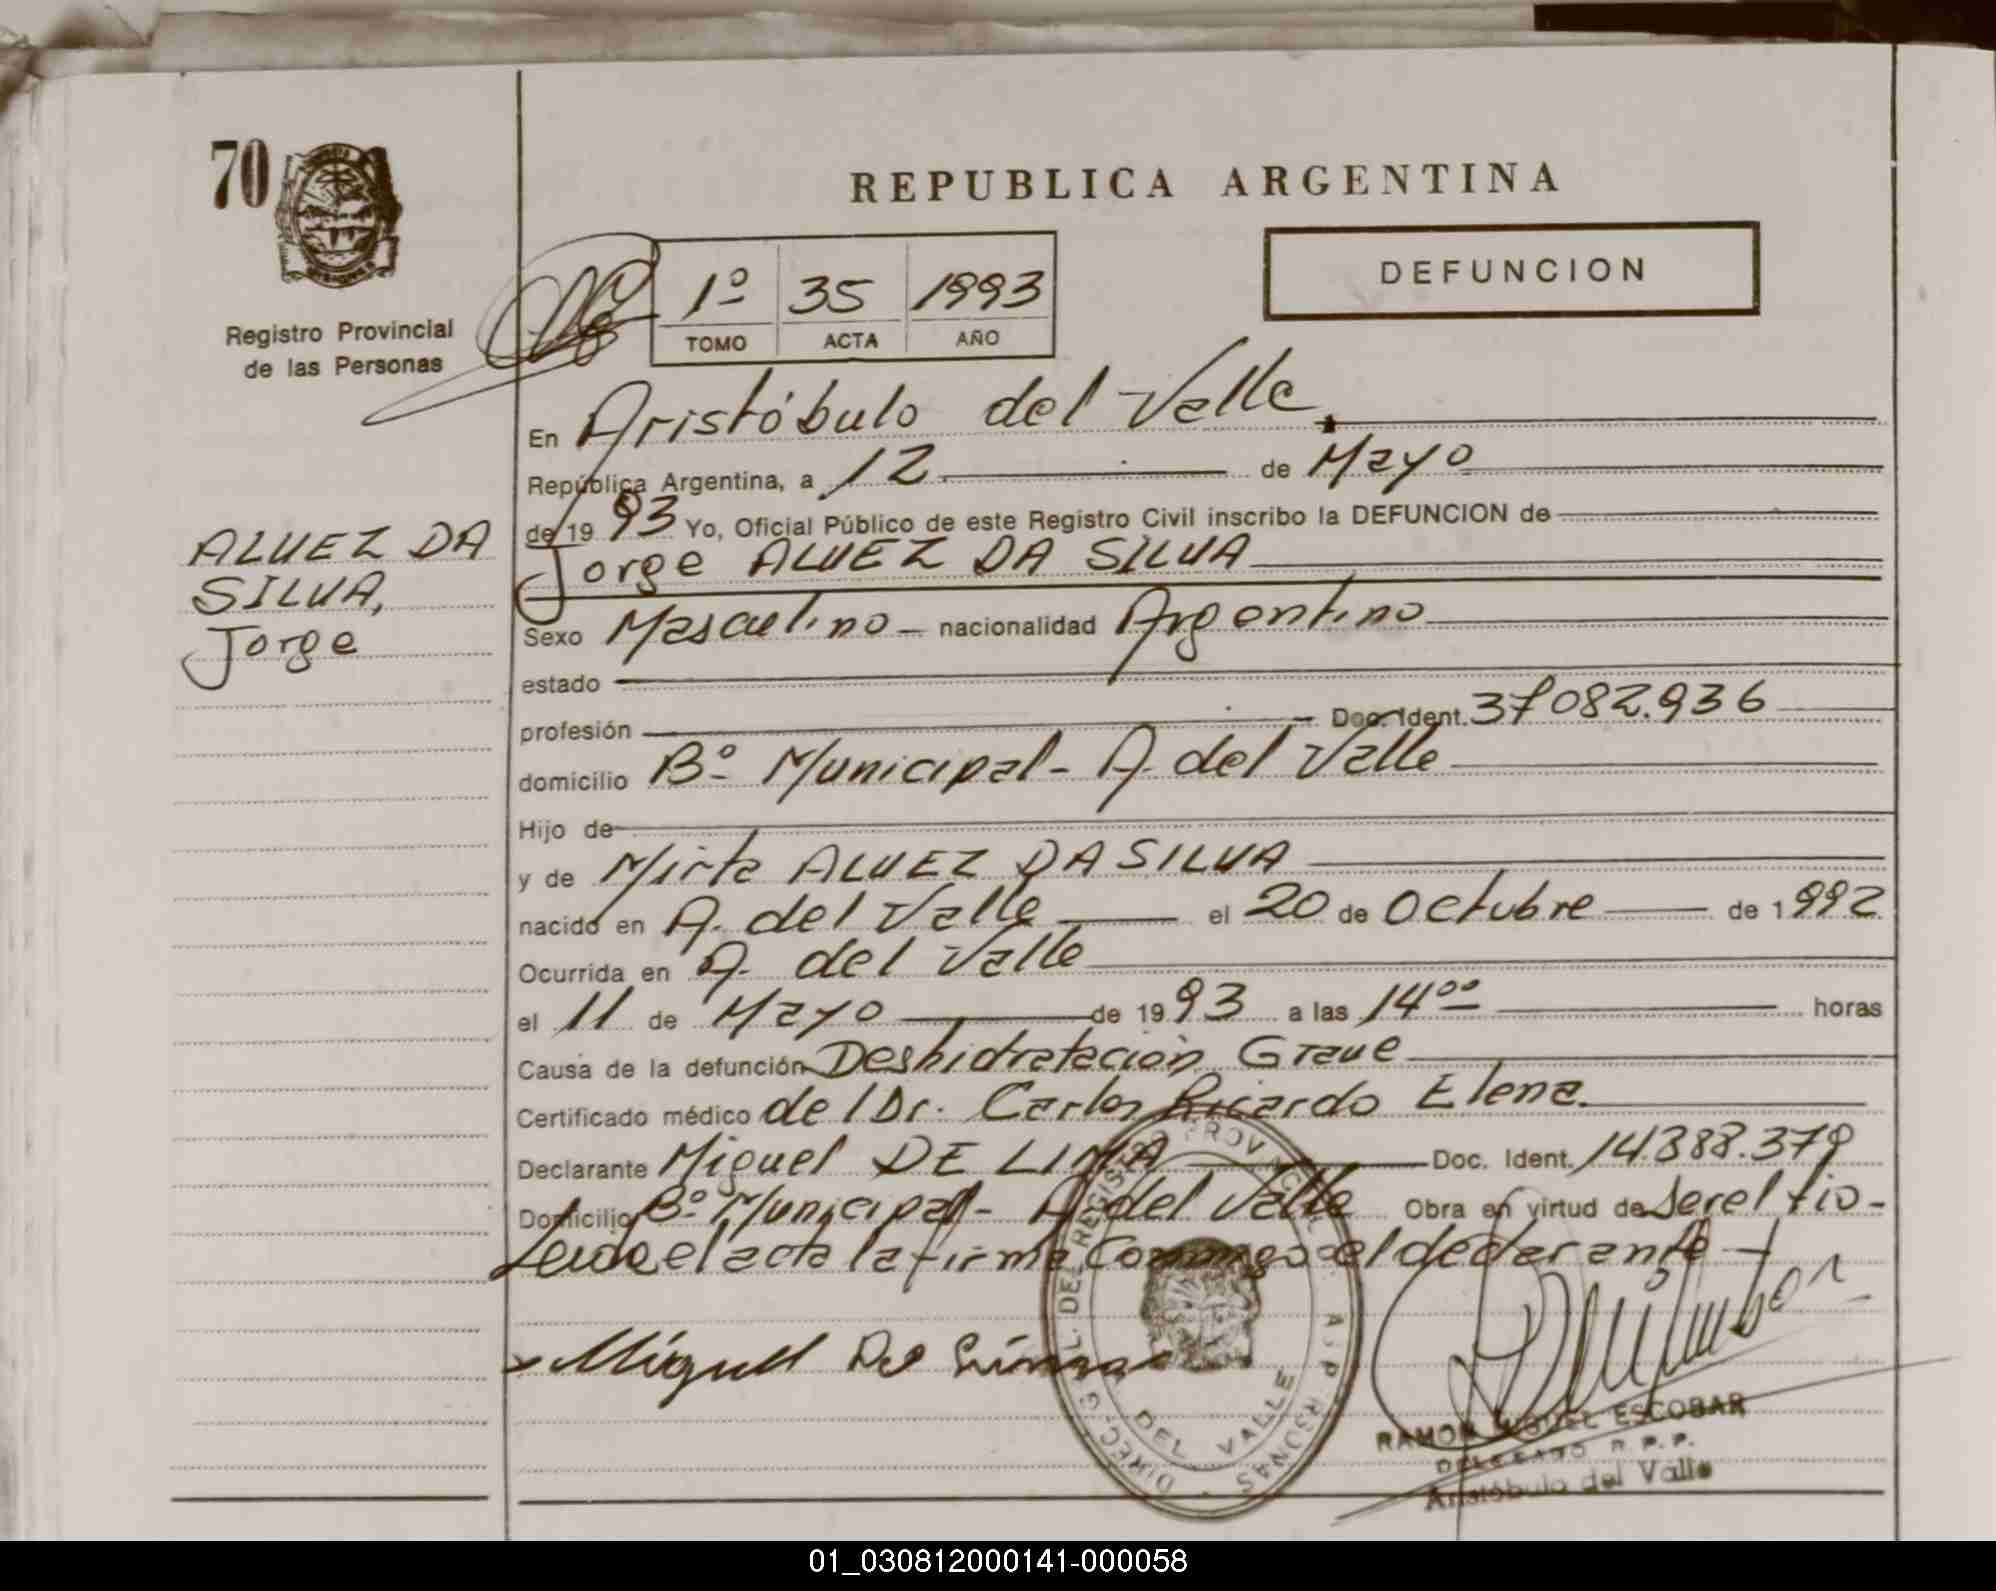 70
Registro Provincial
de las Personas
REPUBLICA ARGENTINA
1º 35 1993
TOMO ACTA AÑO
DEFUNCION
ALVEZ DA
SILVA,
Jorge
En Aristóbulo del Valle.
República Argentina, a 12 de Mayo
de 1993 Yo, Oficial Público de este Registro Civil inscribo la DEFUNCION de
Jorge ALVEZ DA SILVA
Sexo Masculino nacionalidad Argentino
estado
profesión Doc. Ident. 37082.936
domicilio Bº Municipal - A. del Valle
Hijo de
y de Mirta ALVEZ DA SILVA
nacido en A. del Valle el 20 de Octubre de 1992
Ocurrida en A. del Valle
el 11 de Mayo de 1993 a las 14ºº horas
Causa de la defunción Deshidratación Grave
Certificado médico del Dr. Carlos Ricardo Elena.
Declarante Miguel DE LIMA Doc. Ident. 14.388.379
Domicilio Bº Municipal - A. del Valle Obra en virtud de ser el tio-
Leida el acta la firma conmigo el declarante
Miguel De Lima
DEL VALLE
RAMON MIGUEL ESCOBAR
DELEGADO R.P.P.
Aristóbulo del Valle
01_030812000141-000058